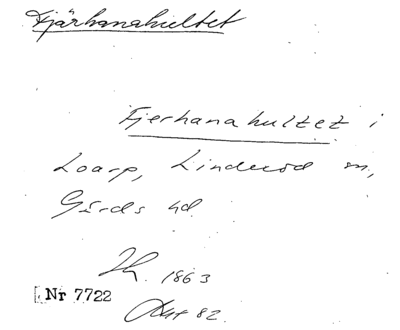 Fjärhanahultet
Fjerhanahultet i
Loarp, Linderöd sn,
Gärds hd.
1863
Nr 7722
82.